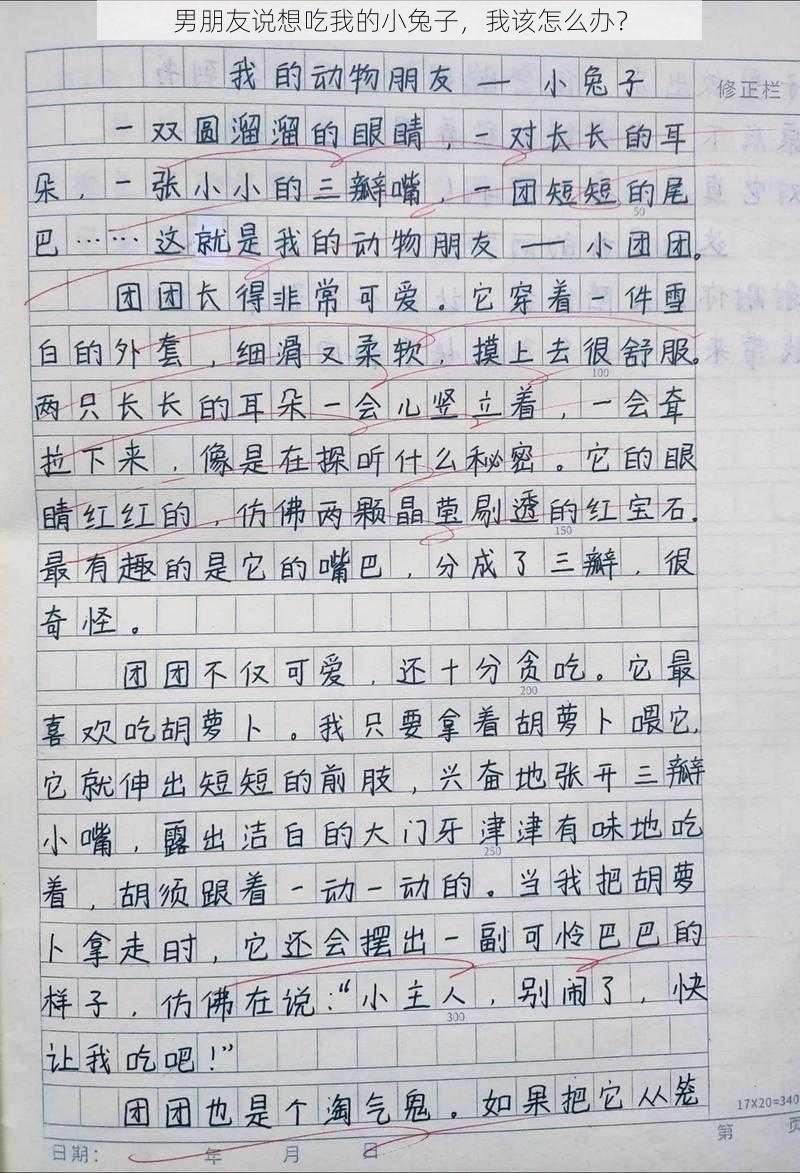 男朋友说想吃我的小兔子，我该怎么办？
我的动物朋友——小兔子
修正栏
一双圆溜溜的眼睛，一对长长的耳
朵，一张小小的三瓣嘴，一团短短的尾
50
巴……这就是我的动物朋友——小团团。
团团长得非常可爱。它穿着一件雪
白的外套，细滑又柔软，摸上去很舒服。
100
两只长长的耳朵一会儿竖立着，一会耷
拉下来，像是在探听什么秘密。它的眼
睛红红的，仿佛两颗晶莹剔透的红宝石。
150
最有趣的是它的嘴巴，分成了三瓣，很
奇怪。
团团不仅可爱，还十分贪吃。它最
200
喜欢吃胡萝卜。我只要拿着胡萝卜喂它，
它就伸出短短的前肢，兴奋地张开三瓣
小嘴，露出洁白的大门牙津津有味地吃
250
着，胡须跟着一动一动的。当我把胡萝
卜拿走时，它还会摆出一副可怜巴巴的
样子，仿佛在说：“小主人，别闹了，快
300
让我吃吧！”
团团也是个淘气鬼。如果把它从笼
17X20=340
日期： 年 月 日
第 页